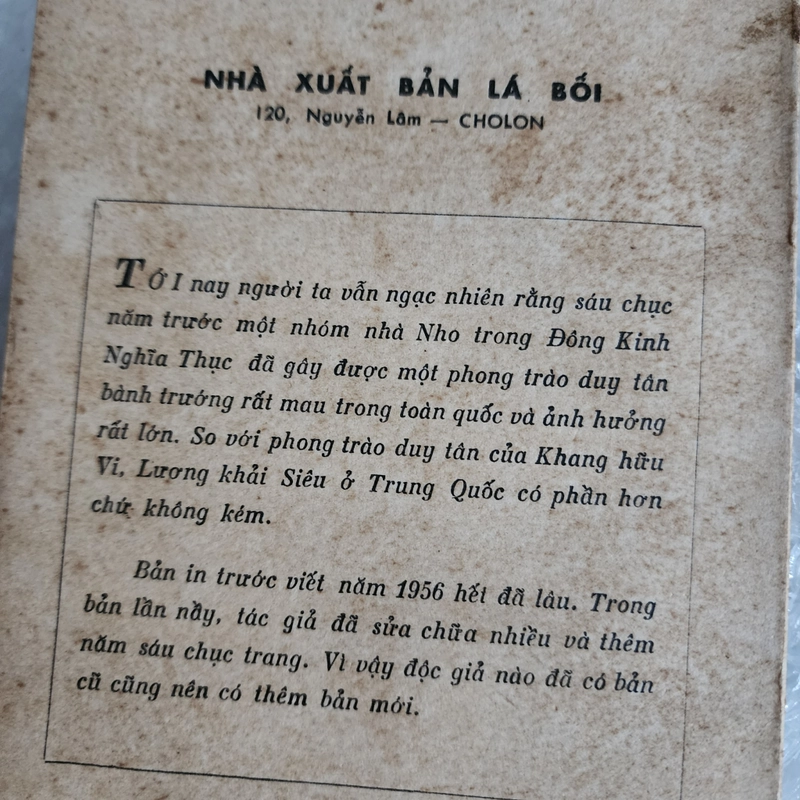 NHÀ XUẤT BẢN LÁ BỐI
120, Nguyễn Lâm — CHOLON
TỚI nay người ta vẫn ngạc nhiên rằng sáu chục
năm trước một nhóm nhà Nho trong Đông Kinh
Nghĩa Thục đã gây được một phong trào duy tân
bành trướng rất mau trong toàn quốc và ảnh hưởng
rất lớn. So với phong trào duy tân của Khang hữu
Vi, Lương khải Siêu ở Trung Quốc có phần hơn
chứ không kém.
Bản in trước viết năm 1956 hết đã lâu. Trong
bản lần nầy, tác giả đã sửa chữa nhiều và thêm
năm sáu chục trang. Vì vậy độc giả nào đã có bản
cũ cũng nên có thêm bản mới.